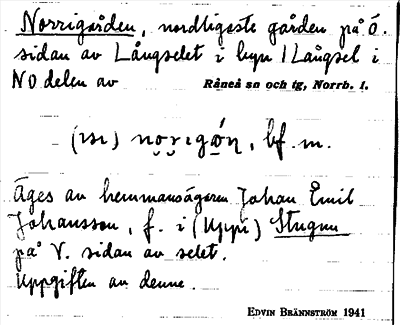 Norrigården, nordligaste gården på Ö.
sidan av Långselet i byn Långsel i
NO delen av Råneå sn och tg, Norrb. l.
(ɪsɪ) no̯r̯ɪgǫ́ṇ, bf. m.
Äges av hemmansägaren Johan Emil
Johansson, f. i (Uppi) Stugun
på V. sidan av selet.
Uppgiften av denne.
EDVIN BRÄNNSTRÖM 1941